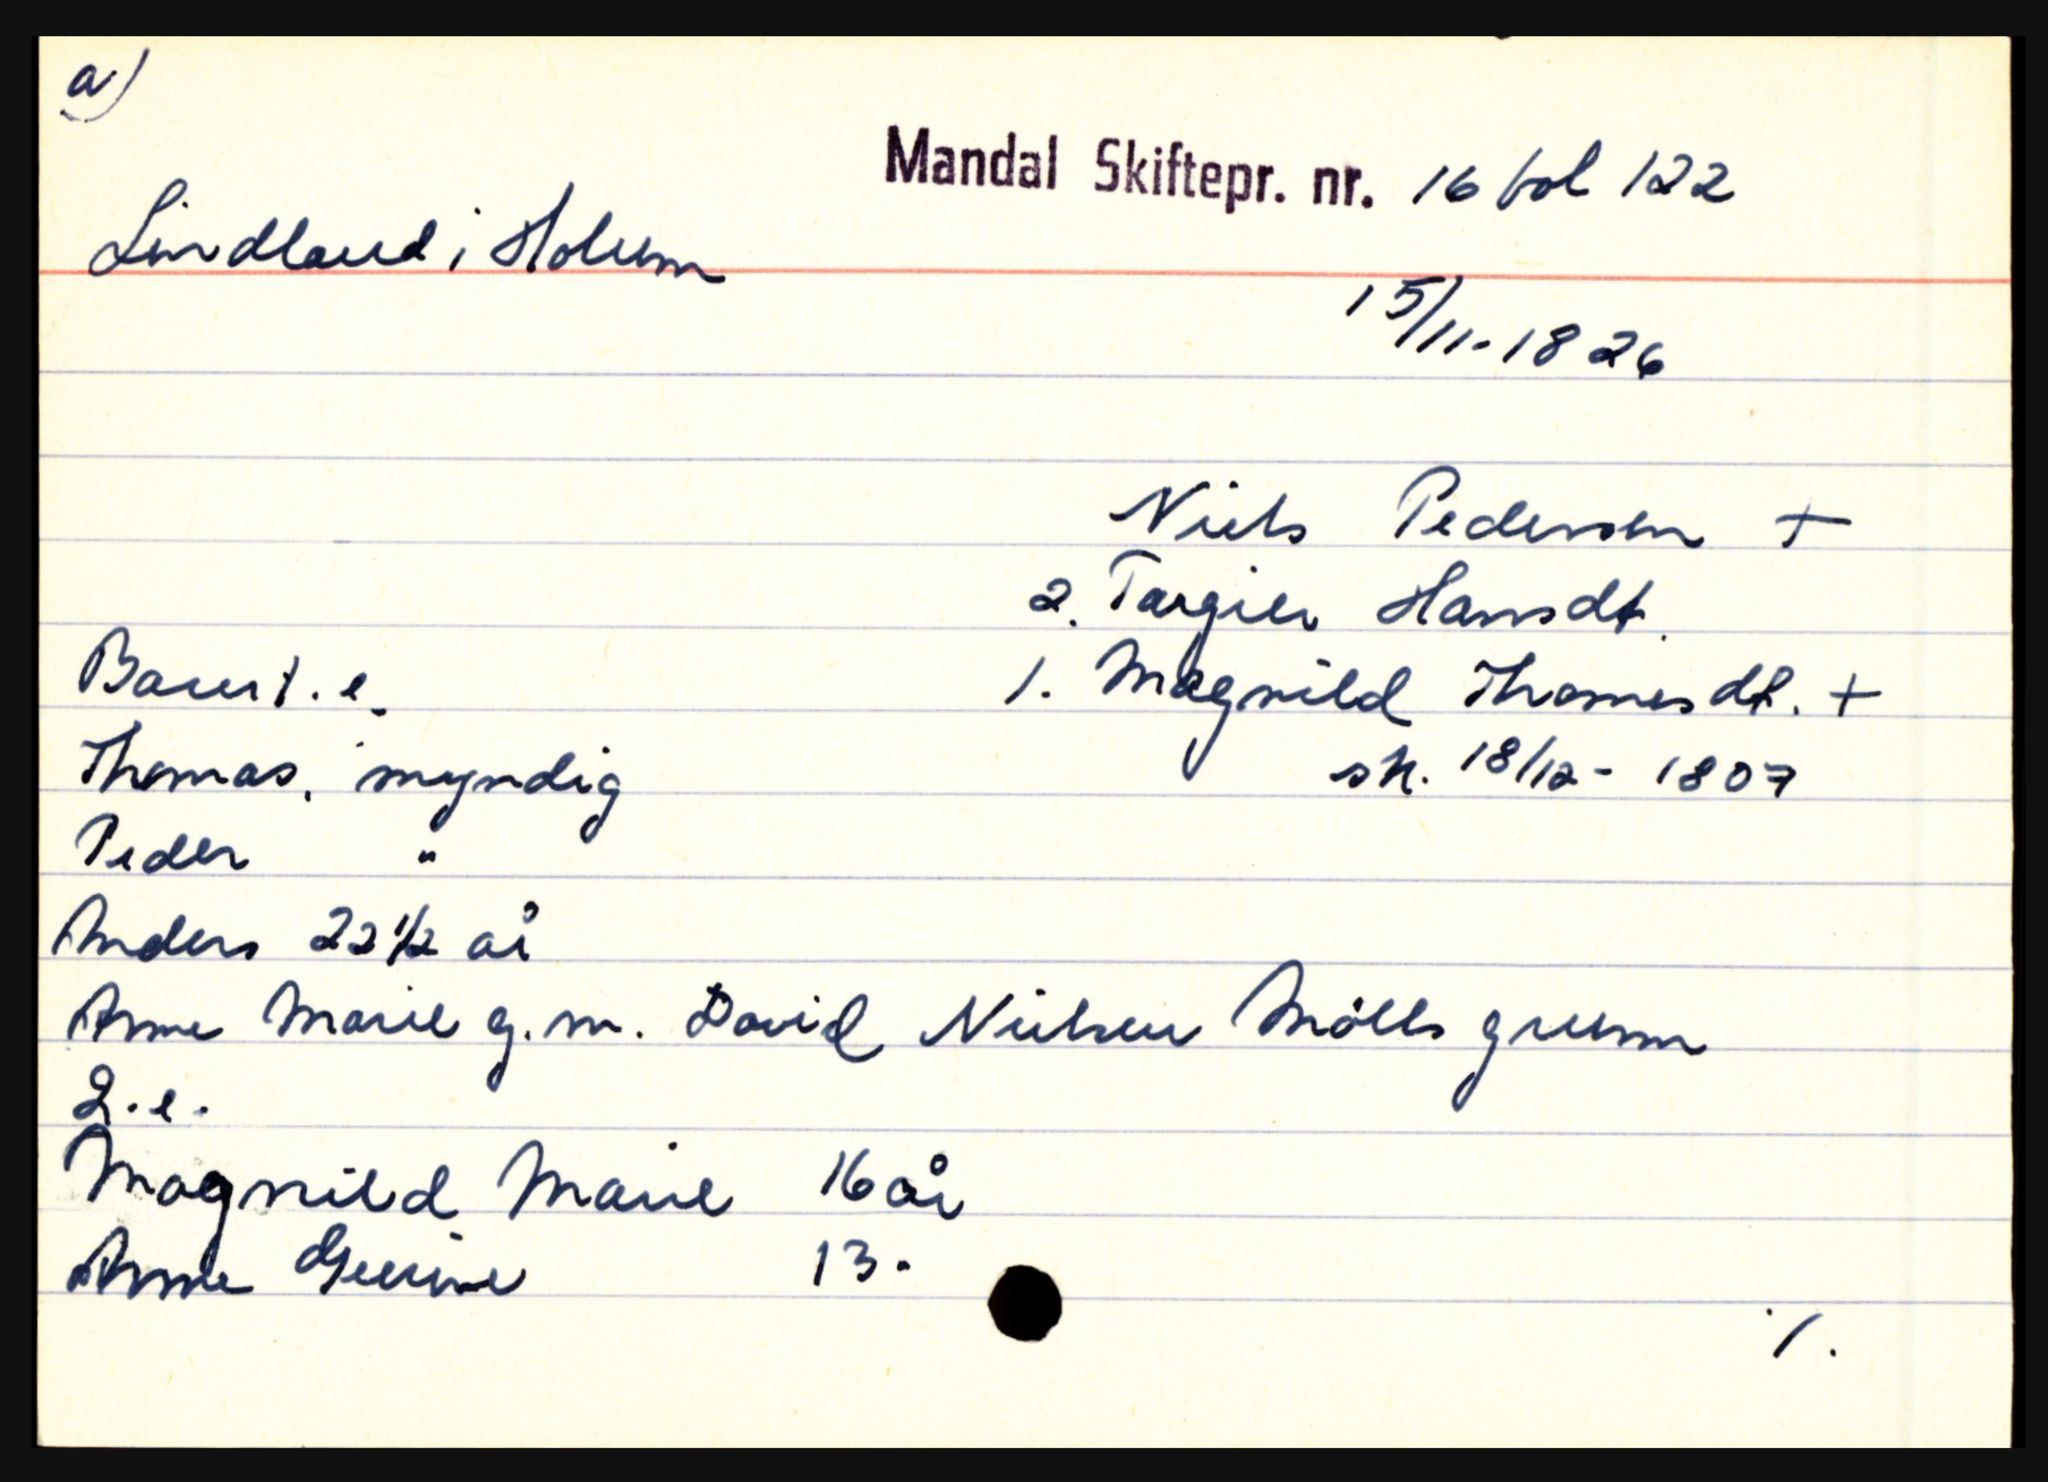 a)
Mandal Skiftepr. nr. 16 fol 122
Lindland i Holum
15/11-1826
Niels Pedersen +
2. Targier Hansdt.
Barn 1. e. 1. Magnild Thomesdt. +
Thomas, myndig sk. 18/12 - 1807
Peder "
Anders 22 1/2 år
Anne Marie g. m. David Nielsen Mölls grunn
2. e.
Magnild Marie 16 år
Anne Gurine 13 "
·/.